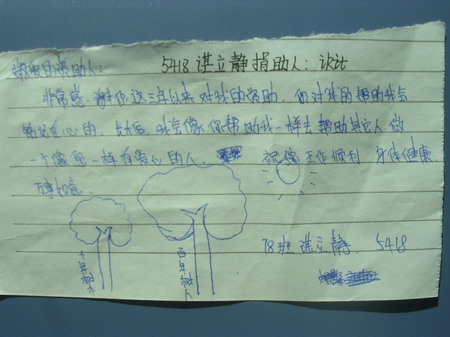 亲爱的资助人: 5418 谌立静 捐助人:
非常感谢你这三年以来对我的资助,你对我的帮助我会
铭记在心的,以后我会像你帮助我一样去帮助其它人,做
一个像您一样有爱心的人。 祝你工作顺利 身体健康
万事如意
十年树木
百年树人
78班 谌立静 5418